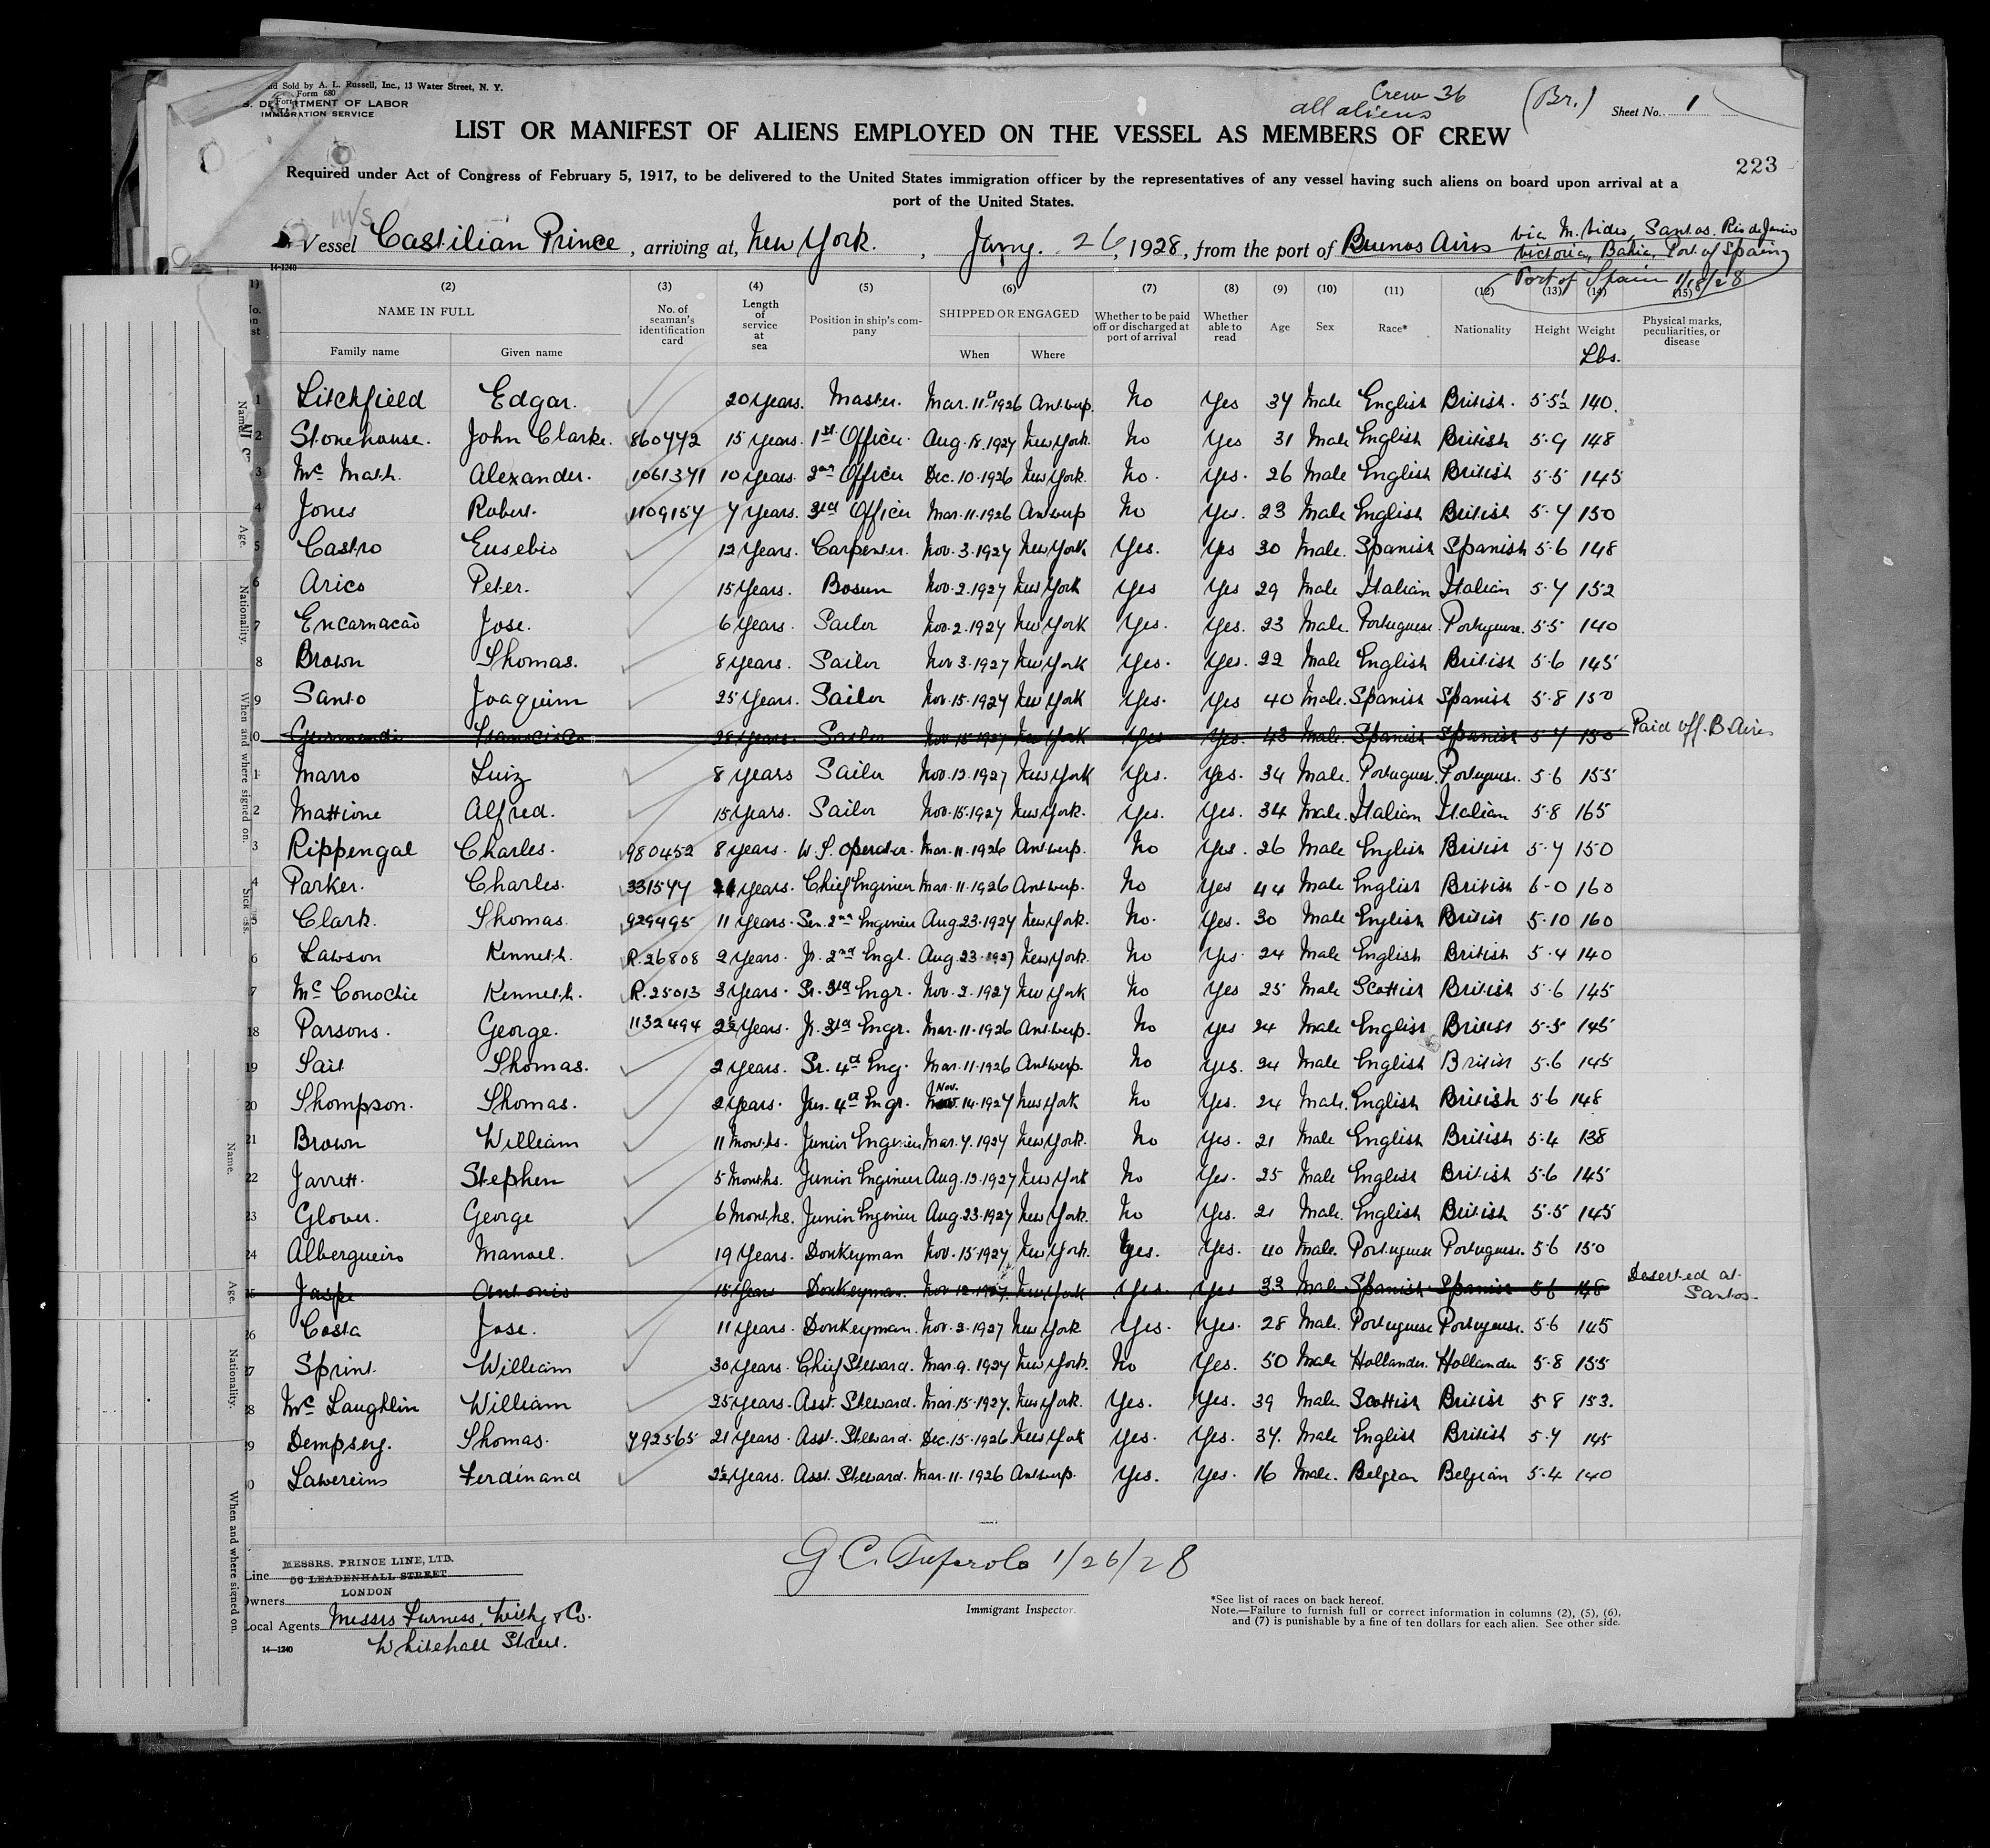 nd Sold by A. L. Russell, Inc., 13 Water Street, N. Y.
Form 680
S. DEPARTMENT OF LABOR
IMMIGRATION SERVICE
Crew 36
all aliens
(Br.)
Sheet No. 1
LIST OR MANIFEST OF ALIENS EMPLOYED ON THE VESSEL AS MEMBERS OF CREW
223
Required under Act of Congress of February 5, 1917, to be delivered to the United States immigration officer by the representatives of any vessel having such aliens on board upon arrival at a
port of the United States.
M/S
Vessel Castilian Prince, arriving at, New York. , Jany. 26, 1928, from the port of Buenos Aires via M. Video, Santos. Rio de Janeiro
Victoria, Bahia, Port of Spain
Port of Spain 1/18/28
14-1240
(2) (3) (4) (5) (6) (7) (8) (9) (10) (11) (12) (13) (14) (15)
NAME IN FULL No. of seaman's identification card Length of service at sea Position in ship's company SHIPPED OR ENGAGED Whether to be paid off or discharged at port of arrival Whether able to read Age Sex Race* Nationality Height Weight Physical marks, peculiarities, or disease
Family name Given name When Where Lbs.
1 Litchfield Edgar. 20 Years. Master. Mar. 11th 1926 Antwerp. No Yes 37 Male English British. 5·5½ 140.
2 Stonehouse. John Clarke. 860772 15 Years. 1st Officer. Aug. 18. 1927 New York. No Yes 31 Male English British 5·9 148
3 Mc Math. Alexander. 1061371 10 Years. 2nd Officer Dec. 10·1926 New York. No. Yes. 26 Male English British 5·5 145
4 Jones Robert. 1109157 7 Years. 3rd Officer Mar. 11·1926 Antwerp No Yes. 23 Male English British 5·7 150
5 Castro Eusebio 12 Years. Carpenter. Nov. 3·1927 New York Yes. Yes 30 Male. Spanish Spanish 5·6 148
6 Arico Peter. 15 Years. Bosun Nov. 2·1927 New York Yes Yes 29 Male Italian Italian 5·7 152
7 Encarnacao Jose. 6 Years. Sailor Nov. 2·1927 New York Yes. Yes. 23 Male. Portuguese. Portuguese. 5·5 140
8 Brown Thomas. 8 Years. Sailor Nov 3·1927 New York Yes. Yes. 22 Male English British 5·6 145
9 Santo Joaquim 25 Years. Sailor Nov. 15·1927 New York Yes. Yes 40 Male. Spanish Spanish 5·8 150
0 Francisco 28 Years. Sailor Nov 15·1927 New York Yes Yes. 43 Male. Spanish Spanish 5·7 150 Paid off. B Aires
1 Marro Luiz 8 Years Sailor Nov. 12·1927 New York Yes. Yes. 34 Male. Portuguese. Portuguese. 5·6 155
2 Mattione Alfred. 15 Years. Sailor Nov. 15·1927 New York. Yes. Yes. 34 Male. Italian Italian 5·8 165
3 Rippengal Charles. 980452 8 Years. W. T. Operator. Mar. 11·1926 Antwerp. No Yes. 26 Male English British 5·7 150
4 Parker. Charles. 331577 21 Years. Chief Engineer Mar. 11·1926 Antwerp. No Yes 44 Male English British 6-0 160
5 Clark. Thomas. 929495 11 Years. Sen. 2nd Engineer Aug. 23·1927 New York. No. Yes. 30 Male English British 5·10 160
6 Lawson Kenneth. R. 26808 2 Years. Jr. 2nd Engr. Aug. 23·1927 New York. No Yes. 24 Male English British 5·4 140
7 Mc Conochie Kenneth. R. 25013 3 Years. Sr. 3rd Engr. Nov. 2·1927 New York No Yes 25 Male Scottish British 5·6 145
18 Parsons. George. 1132494 2½ Years. Jr. 3rd Engr. Mar. 11·1926 Antwerp. No Yes 24 Male English British 5·5 145
19 Tait Thomas. 2 Years. Sr. 4th Eng. Mar. 11·1926 Antwerp. No Yes. 24 Male English British 5·6 145
20 Thompson. Thomas. 2 Years. Jun. 4th Engr. Nov. 14·1927 New York No Yes. 24 Male. English British 5·6 148
21 Brown William 11 Months. Junior Engineer Mar. 7·1927 New York. No Yes. 21 Male English British 5·4 138
22 Jarrett. Stephen 5 Months. Junior Engineer Aug. 12·1927 New York No Yes. 25 Male English British 5·6 145
23 Glover. George 6 Months. Junior Engineer Aug. 23·1927 New York. No Yes. 21 Male. English British 5·5 145
24 Albergueiro Manoel. 19 Years. Donkeyman Nov. 15·1927 New York. Yes. Yes. 40 Male. Portuguese Portuguese. 5·6 150
5 Jaspe Antonio 15 Years Donkeyman. Nov 12·1927. New York Yes. Yes 33 Male Spanish Spanish 5·6 148 Deserted at Santos
26 Costa Jose. 11 Years. Donkeyman. Nov. 2·1927 New York Yes. Yes. 28 Male. Portuguese Portuguese. 5·6 145
27 Sprint. William 30 Years. Chief Steward. Mar. 9. 1927 New York. No Yes. 50 Male Hollander. Hollander 5·8 155
28 Mc Laughlin William 25 Years. Asst. Steward. Mar. 15·1927. New York. Yes. Yes. 39 Male Scottish British 5·8 153.
29 Dempsey. Thomas. 792565 21 Years. Asst. Steward. Dec. 15·1926 New York Yes. Yes. 37. Male English British 5·7 145
30 Lawereins Ferdinand 2½ Years. Asst. Steward. Mar. 11·1926 Antwerp. Yes. Yes. 16 Male. Belgian Belgian 5·4 140
MESSRS. PRINCE LINE, LTD.
Line 56 LEADENHALL STREET
LONDON
Owners
Local Agents Messrs Furness, Withy & Co.
Whitehall Street.
14—1240
1/26/28
Immigrant Inspector.
*See list of races on back hereof.
Note.—Failure to furnish full or correct information in columns (2), (5), (6),
and (7) is punishable by a fine of ten dollars for each alien. See other side.
Name.
Age.
Nationality.
When and where signed on.
Sickness.
Name.
Age.
Nationality.
When and where signed on.